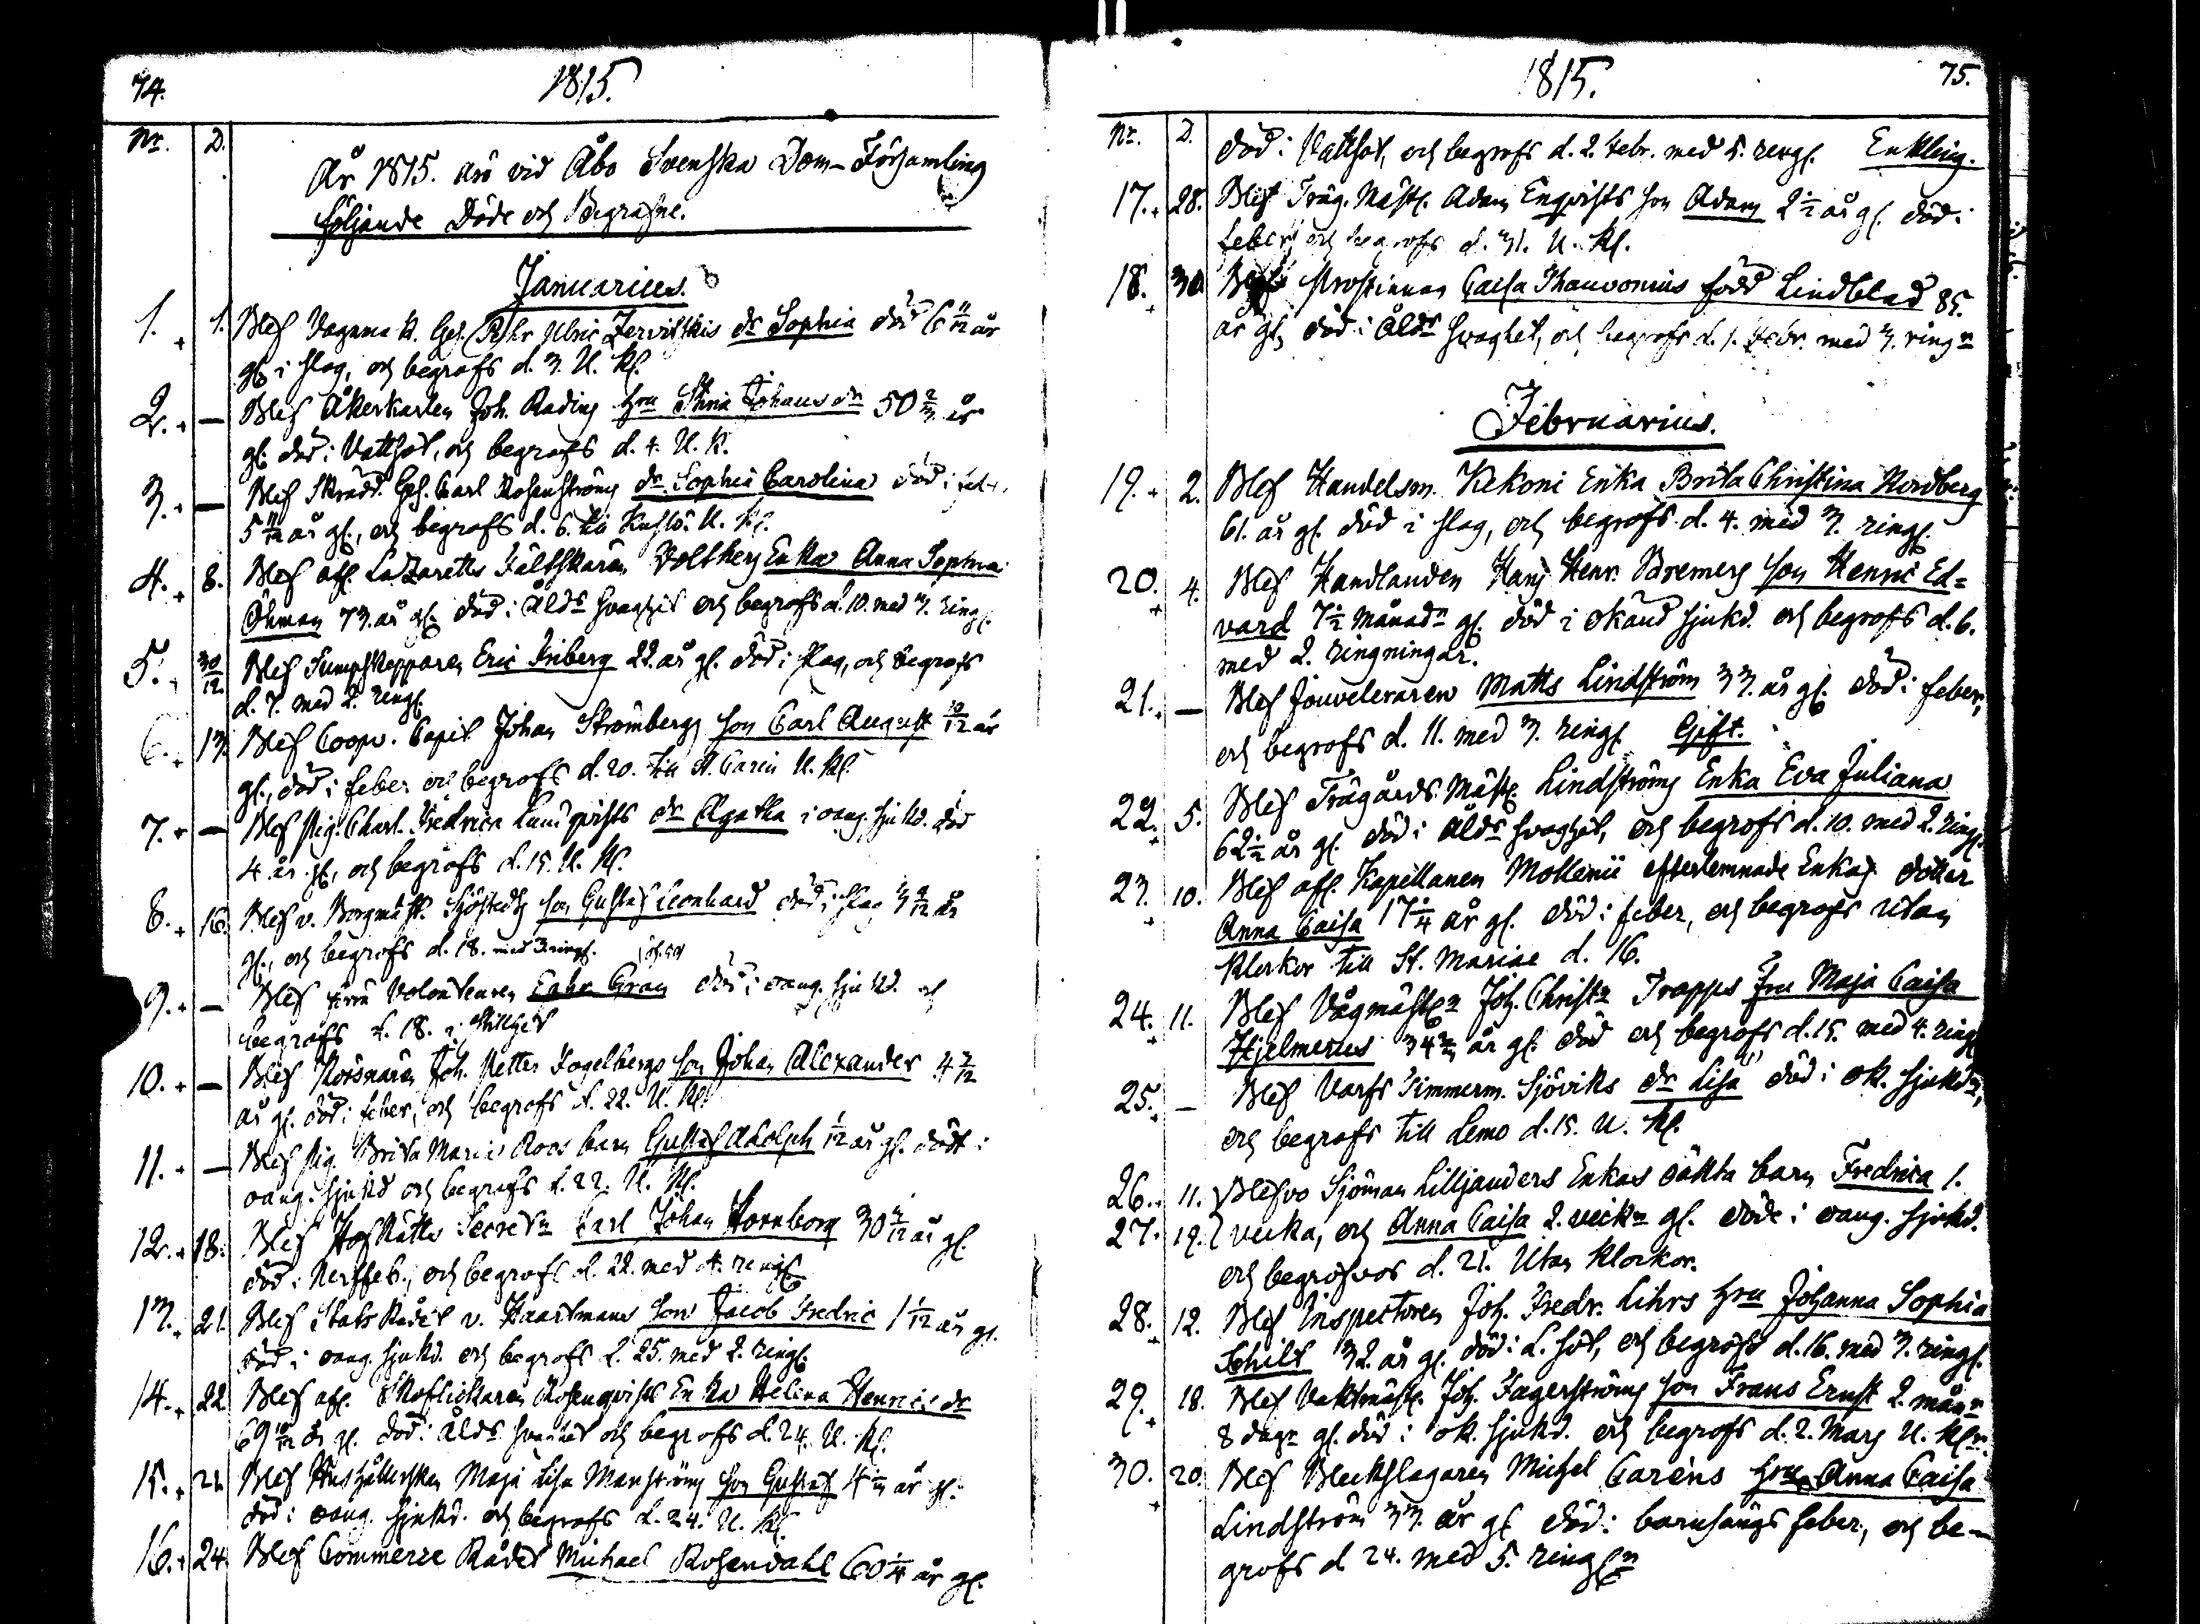 74.
1815.
Nr. D.
År 1815. äro vid Åbo Svenska Dom-Församling
följande Döde och Begrafne.
Januarius.
1. 1. Blef Vagnmak. Ges. Ulric dr Sophia död 6 11/12 år
gl. i slag, och begrofs d. 3. U. Kl.
2. — Blef Åkerkarlen Joh. Rading hru Stina Johansdr 50 2/3 år
gl. död i Vattsot, och begrofs d. 4. U. K.
3. — Blef Skrädd. Ges. Carl Rosenström dr Sophia Carolina död i
5 11/12 år gl., och begrofs d. 6. till Kustö. U. Kl.
4. 8. Blef afl. Lazaretts Fältskären Voltberg Enka Anna Sophia
Öhman 73. år gl. död i Ålds svaghet och begrofs d. 10. med 3. ringl.
5. 30/12. Blef Sumpskepparen Eric Friberg 22. år gl. död i slag, och begrofs
d. 7. med 2. ringl.
6. 13. Blef Coopv. Capit Johan Strömbergs son Carl August 10/12 år
gl., död i feber och begrofs d. 20. till St. Carin U. Kl.
7. — Blef pig. Charl. Fredrica Lundqvists dr Agatha i oang. sjukd. död
4 år gl., och begrofs d. 15. U. Kl.
8. 16. Blef v. Borgmäst. Sjöstedts son Gustaf Leonhard död i slag 3 9/12 år
gl., och begrofs d. 18. med 3 ringl.
9. — Blef Volonteuren Gran död i oang. sjukd. och
begrofs d. 18. i Stillhet
10. — Blef Körsnären Joh. Petter Fogelbergs son Johan Alexander 4 7/12
år gl. död i feber, och begrofs d. 22. U. Kl.
11. — Blef pig. Brita Maria Roos barn Gustaf Adolph 1/12 år gl. dödt i
oang. sjukd och begrofs d. 22. U. Kl.
12. 18. Blef HofRätts Secretn Carl Johan Hornborg 30 /12 år gl.
död i Nerffeb., och begrofs d. 22. med 4. ringl.
13. 21. Blef StatsRådet v. Haartmans son Jacob Fredric 1 1/12 år gl.
död i oang. sjukd. och begrofs d. 25. med 2. ringl.
14. 22. Blef afl. Skoflickaren Rosenqvists Enka Helena Henricsdr
69 10/12 år gl. död i Ålds svaghet och begrofs d. 24. U. Kl.
15. 21. Blef Hushållerskan Maja Lisa Manström son Gustaf 4 år gl.
död i oang. sjukd. och begrofs d. 24. U. Kl.
16. 24. Blef Commerce Rådet Michael Rosendahl 60 1/4 år gl.
1815.
75.
Nr. D.
död i Vattsot, och begrofs d. 2. Febr. med 5. ringl. Enkling.
17. 28. Blef Träg. Mäst. Adam Enqvists son Adam 2 1/2 år gl. död i
feber, och begrofs d. 31. U. Kl.
18. 30. Blef Prostinnan Caisa Thauvonius född Lindblad 85.
år gl, död i Ålds svaghet, och begrofs d. 1. Febr. med 3. ringn
Februarius.
19. 2. Blef Handelsm. Kekoni Enka Brita Christina Nordberg
61. år gl. död i slag, och begrofs d. 4. med 3. ringl.
20. 4. Blef Handlanden Hans Henr. Bremers son Henric Ed=
vard 7 1/2 månadr gl. död i okänd sjukd. och begrofs d. 6.
med 2. ringningar.
21. — Blef Jouveleraren Matts Lindström 33. år gl. död i feber,
och begrofs d. 11. med 3. ringl. Gift.
22. 5. Blef Trägårds Mäst. Lindströms Enka Eva Juliana
62 1/2 år gl. död i Ålds svaghet, och begrofs d. 10. med 2. ringl.
23. 10. Blef afl. Kapellanen Mollenii efterlemnade Enkas dotter
Anna Caisa 17 1/4 år gl. död i feber, och begrofs utan
Klockor till St. Mariae d. 16.
24. 11. Blef Vågmästn Joh. Christn Trapps fru Maja Caisa
Hjelmerus 34 2/3 år gl. död och begrofs d. 15. med 4. ringl
25. — Blef Varfs Timmerm. Sjöviks dr Lisa död i ok. sjukd,
och begrofs till Lemo d. 15. U. Kl.
26. 11. Blefvo Sjöman Lilljanders Enkas oäkta barn Fredrica 1.
27. 19. vecka, och Anna Caisa 2. veckr gl. döde i oang. sjukd.
och begrofvos d. 21. Utan Klockor.
28. 12. Blef Inspectoren Joh. Fredr. Lihrs hru Johanna Sophia
Schilt 32. år gl. död i L. sot, och begrofs d. 16. med 3. ringl.
29. 18. Blef Vaktmäst. Joh. Fagerströms son Frans Ernst 2. månr
8 dagr gl. död i ok. sjukd. och begrofs d. 2. Mars U. Klr.
30. 20. Blef Bleckslagaren Michel Carens hru Anna Caisa
Lindström 33. år gl. död i barnsängs feber, och be-
grofs d 24. med 5. ringln